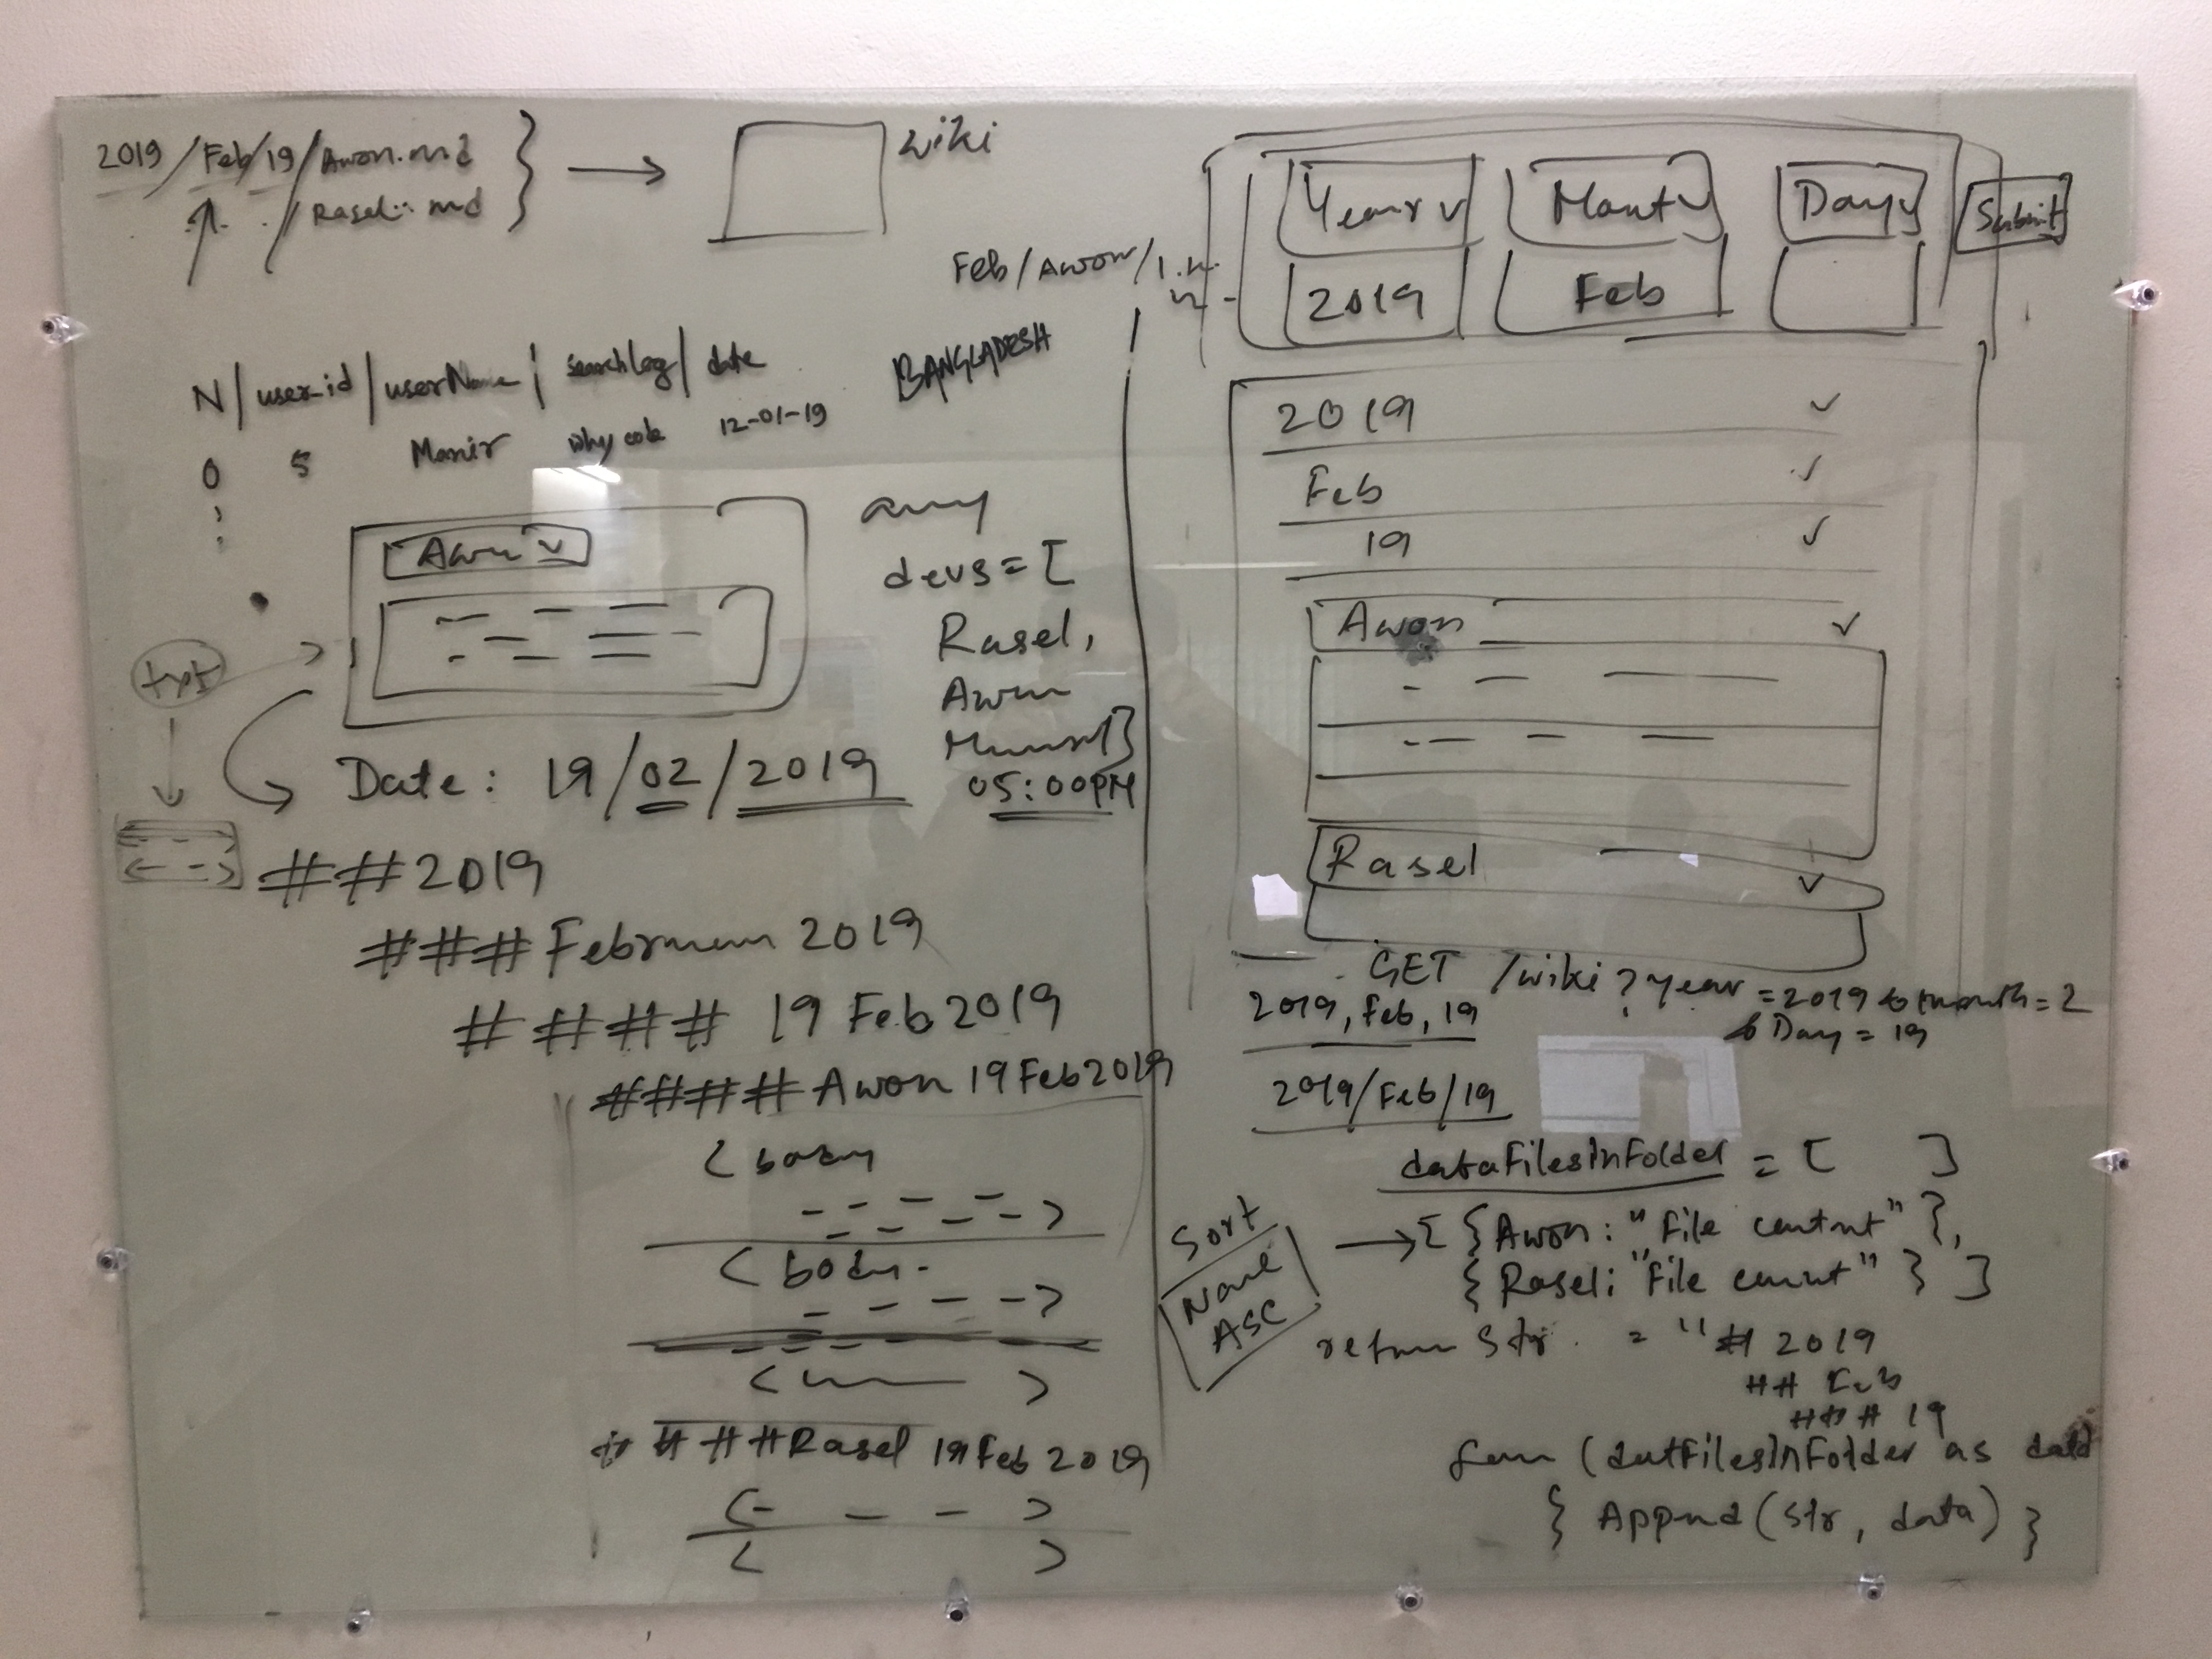 2019/Feb/19/Awon.md
/Rasel.md
wiki
Feb/Awon/1.
N/user-id/userName/searchlog/date
0 5 Monir why code 12-01-19
BANGLADESH
Awon
txt
devs=[
Rasel,
Awon
05:00PM
Date: 19/02/2019
##2019
### 2019
#### 19 Feb 2019
##### Awon 19 Feb 2019
<body
>
<body
>
< >
####Rasel 19 Feb 2019
< - - - >
< >
Year Month Day Submit
2019 Feb
2019
Feb
19
Awon
Rasel
GET /wiki?year=2019&month=2
&Day=19
2019, Feb, 19
2019/Feb/19
dataFilesInFolder = [ ]
Sort
Name
ASC
→[{Awon: "File content"},
{Rasel: "File content"}]
return str = "# 2019
## Feb
### 19
(datFilesInFolder as data
{ Append(str, data) }